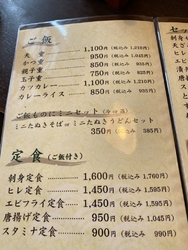 ご飯
天重 1,100円(税込み 1,210円)
かつ重 950円
親子重 850円(税込み 935円)
玉子重 750円(税込み 825円)
カツカレー 1,100円(税込み 1,210円)
カレーライス 850円(税込み 935円)
ご飯ものにミニセット
ミニたぬきそば or ミニたぬきうどんセット
350円(税込み 385円)
定食(ご飯付き)
刺身定食 1,600円(税込み 1,760円)
ヒレ定食 1,450円(税込み 1,595円)
エビフライ定食 1,450円(税込み 1,595円)
唐揚げ定食 950円(税込み 1,045円)
スタミナ定食 900円(税込み 990円)
セ
刺身
ヒレ
エビ
唐揚
スタ